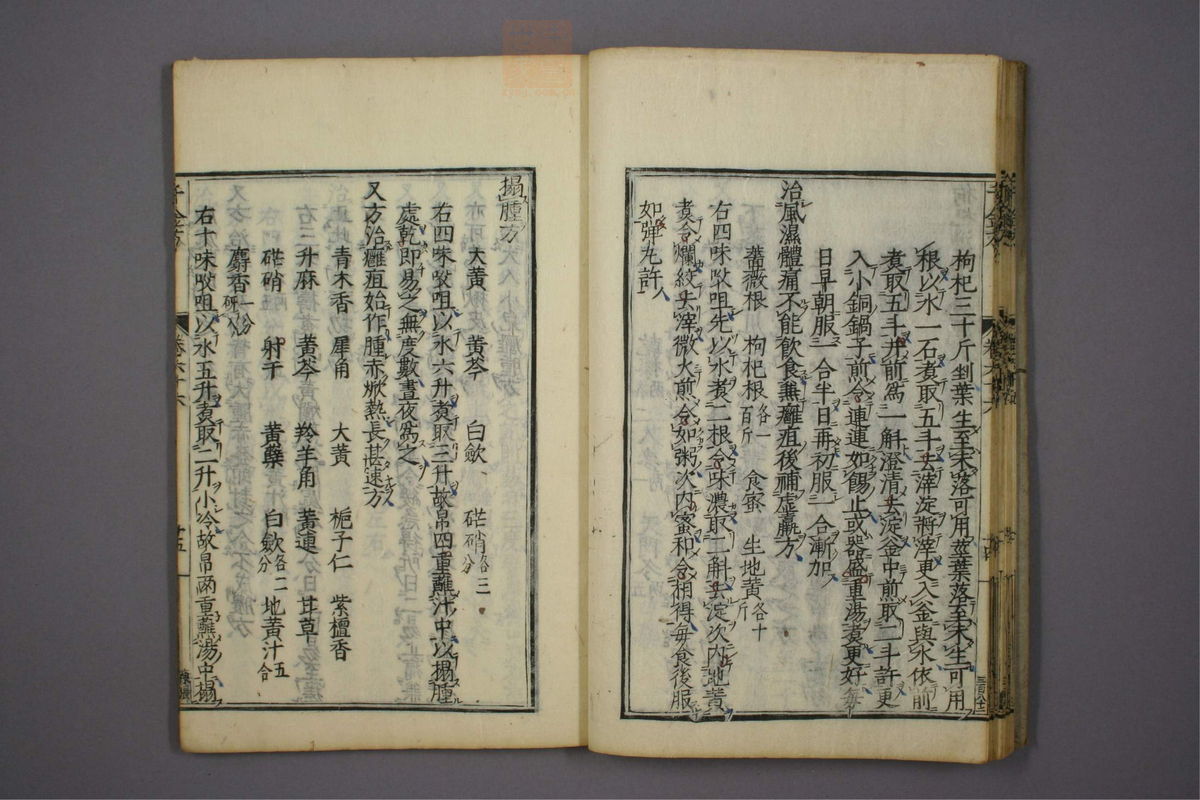 枸杞三十斤剉葉生至未落可用莖葉落至未生可用
根以水一石煮取五斗去滓淀將滓更入釜與水依前
煮取五斗并前爲一斛澄清去淀釜中煎取二斗許更
入小銅鍋子煎令連連如餳止或器盛重湯煮更好每
日早朝服二合半日再初服一合漸加
治風濕體痛不能飲食兼癰疽後補虛羸方
薔薇根 枸杞根各一百斤 食蜜 生地黄各十斤
右四味㕮咀先以水煮二根令味濃取二斛去淀次內地黄
煮令爛絞去滓微火煎令如粥次內蜜和令相得每食後服
如彈丸許
搨腫方
大黄 黄芩 白歛 芒硝各三分
右四味㕮咀以水六升煮取三升故帛四重蘸汁中以搨腫
處乾即易之無度數晝夜爲之
又方治癰疽始作腫赤焮熱長甚速方
青木香 犀角 大黄 梔子仁 紫檀香
升麻 黄芩 羚羊角 黄連 甘草
芒硝 射干 黄蘗 白歛各二分 地黄汁五合
麝香一分研入
右十味㕮咀以水五升煮取二升小冷故帛兩重蘸湯中搨
千金方
卷六十六
廿五